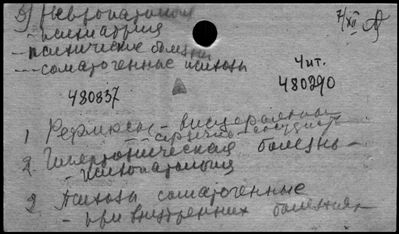 3) Невропатология
- психиатрия
7/XII
- психические болезни
--- соматогенные психозы
Чит.
480837
480890
1 Рефлексы - висцеральные
- сердечно-сосудист
2. Гипертоническая болезнь -
- психопатология
2 Психозы соматогенные
- при внутренних болезнях